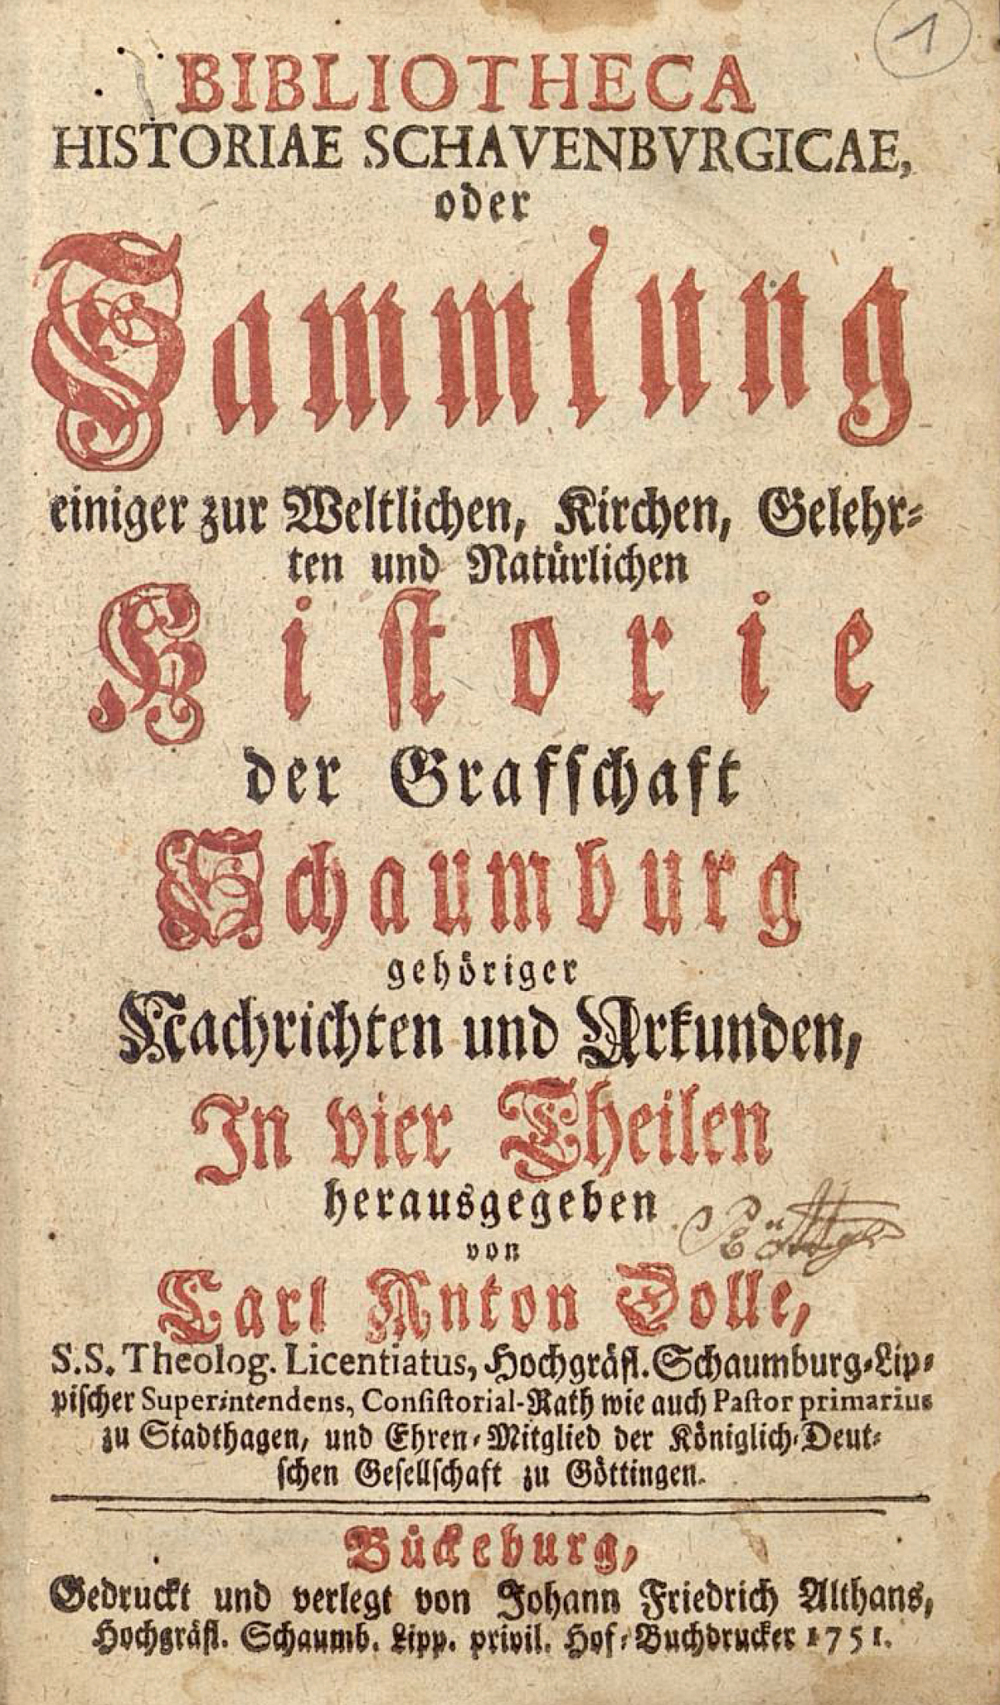 1
BIBLIOTHECA
HISTORIAE SCHAVENBVRGICAE,
oder
Sammlung
einiger zur Weltlichen, Kirchen, Gelehr-
ten und Natürlichen
Historie
der Grafschaft
Schaumburg
gehöriger
Nachrichten und Urkunden,
In vier Theilen
herausgegeben
von
Carl Anton Dolle,
S.S. Theolog. Licentiatus, Hochgräfl. Schaumburg-Lip-
pischer Superintendens, Consistorial-Rath wie auch Pastor primarius
zu Stadthagen, und Ehren-Mitglied der Königlich-Deut-
schen Gesellschaft zu Göttingen.
Bückeburg,
Gedruckt und verlegt von Johann Friedrich Althans,
Hochgräfl. Schaumb. Lipp. privil. Hof-Buchdrucker 1751.